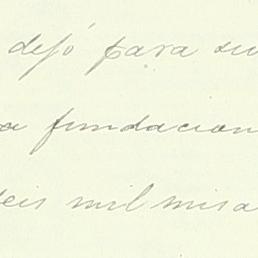 dejó para su
a fundacion
seis mil misa